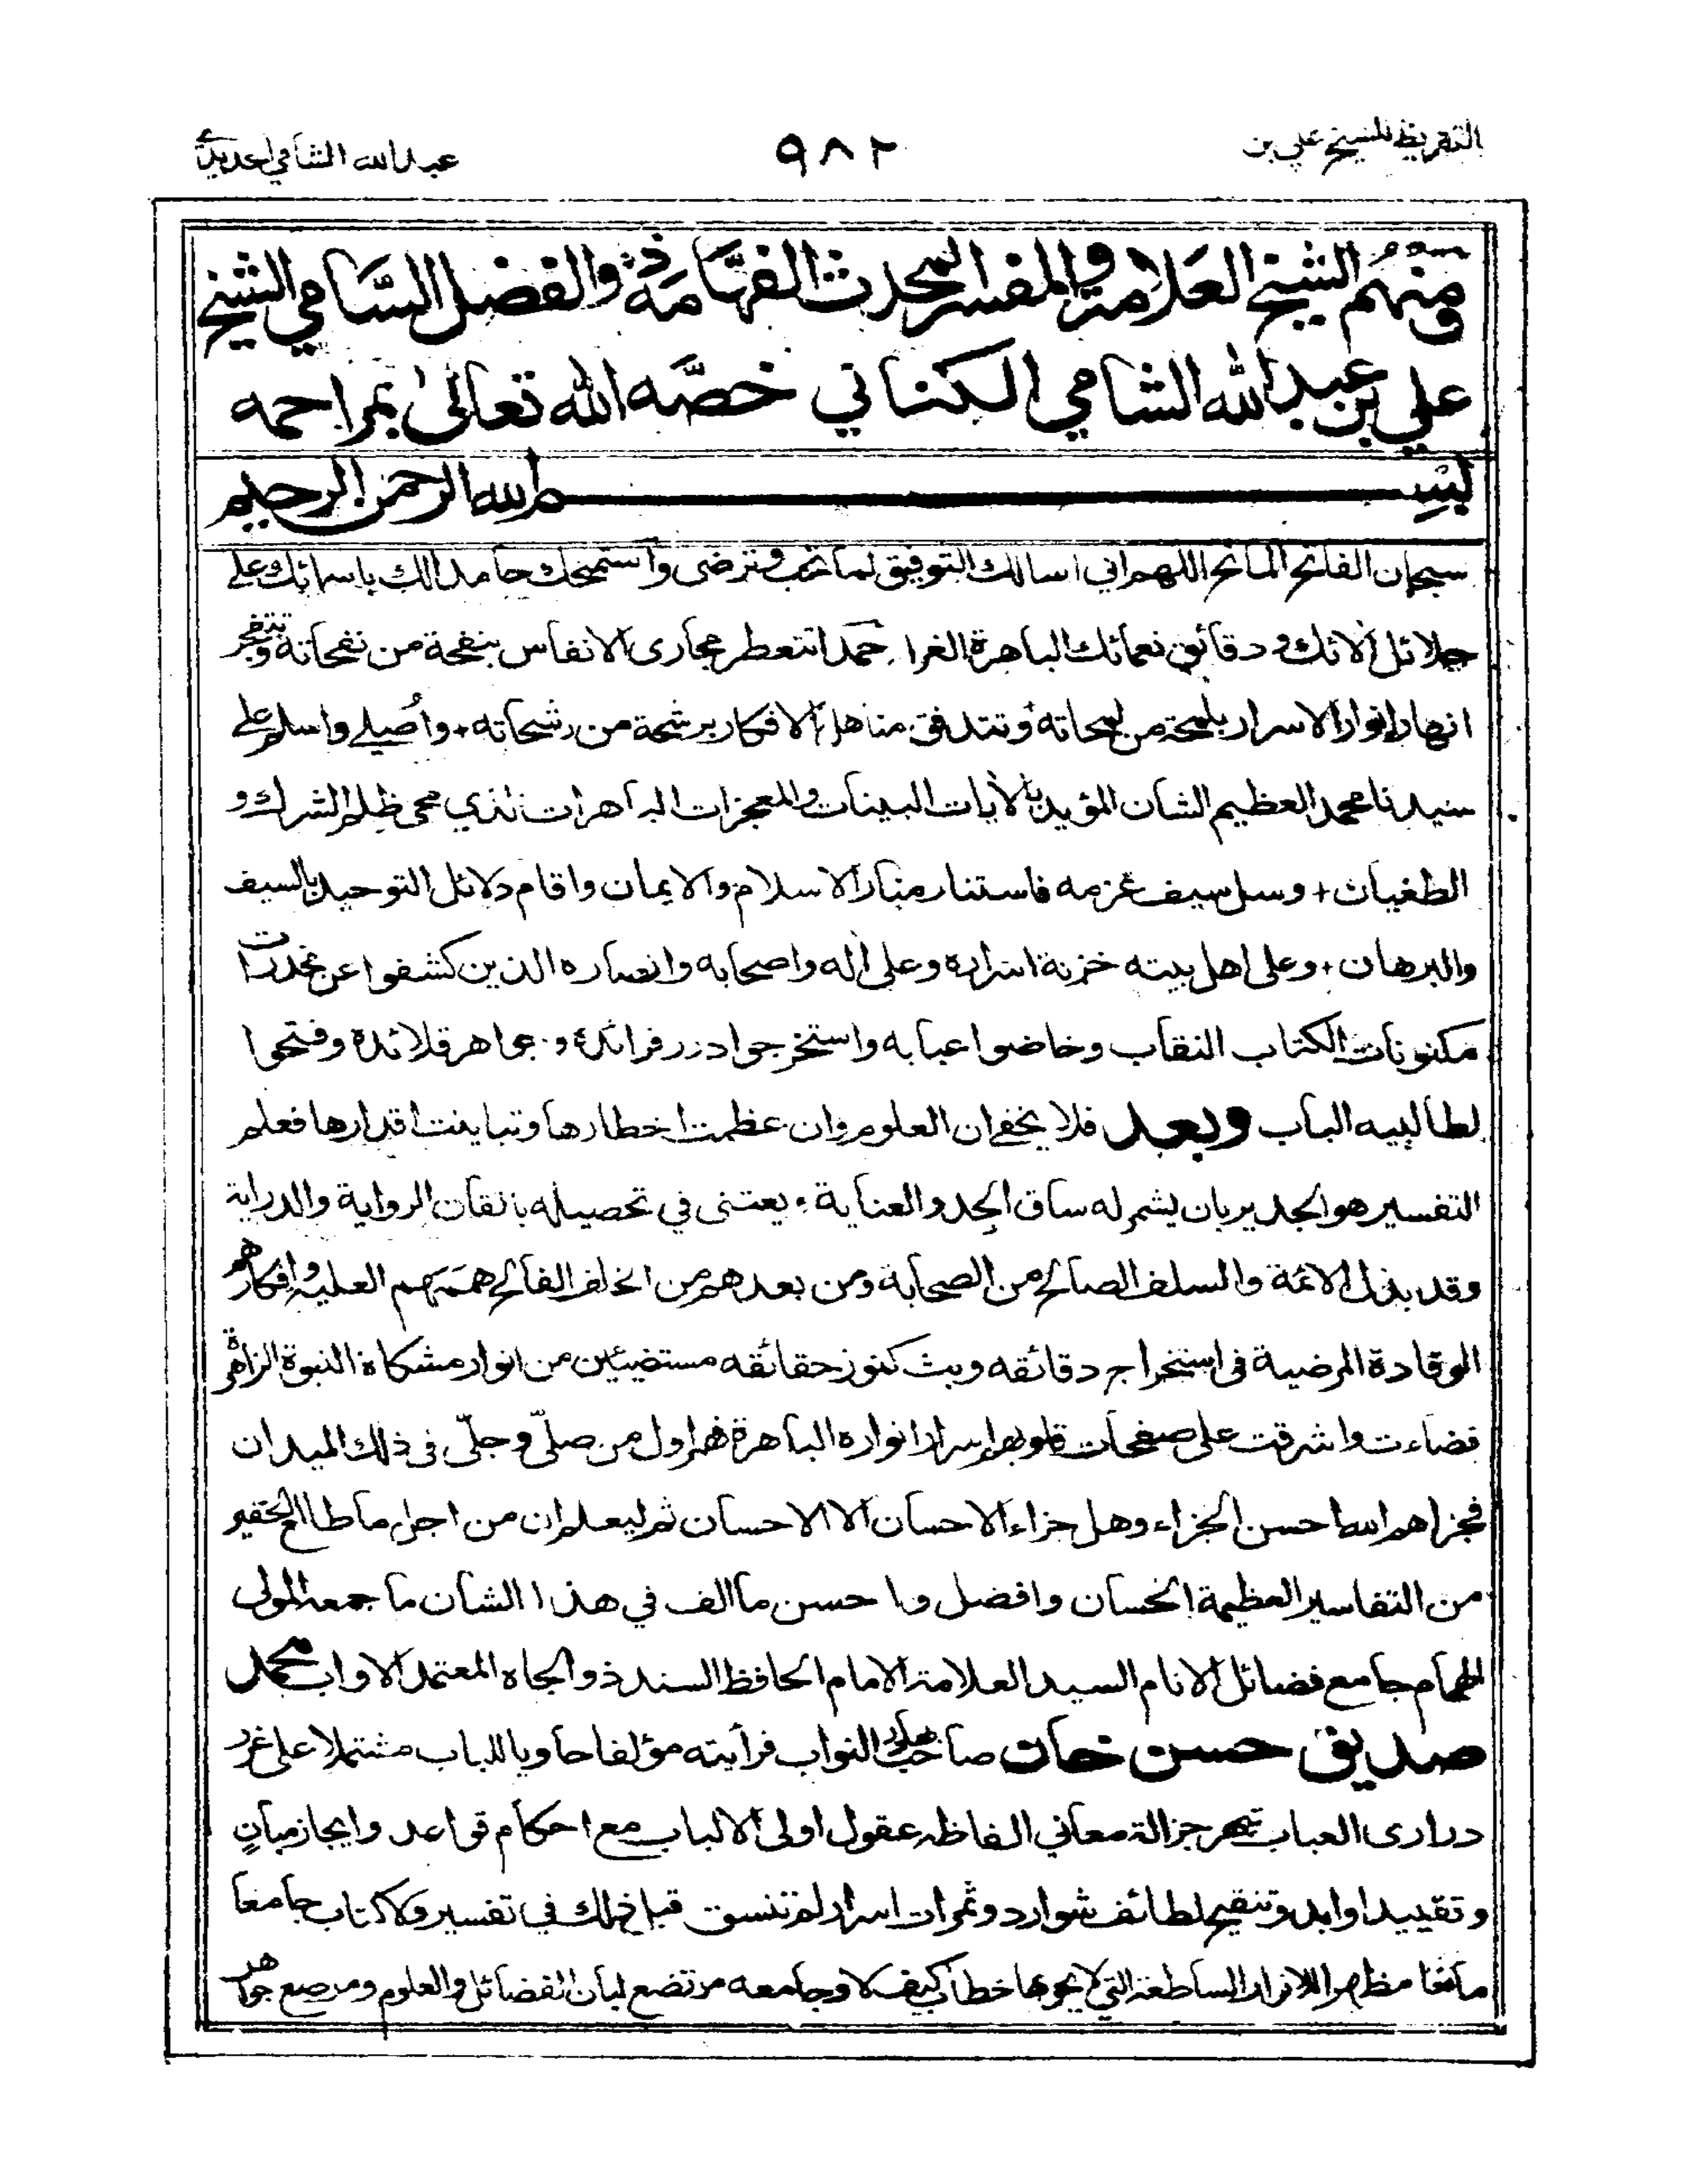 التقريظ للشيخ علي بن
٩٨٢
عبد الله الشامي الحديدي
ومنهم الشيخ العلامة والمفسر المحدث الفهامة ذو الفضل السامي الشيخ
علي بن عبد الله الشامي الكناني خصه الله تعالى بمراحمه
بسم الله الرحمن الرحيم
سبحان الفاتح المانح اللهم اني اسالك التوفيق لما تحب وترضى وأستمنحك حامدا لك باسمائك وعلى
جلائل آلائك ودقائق نعمائك الباهرة الغرا حمدا تتعطر مجارى الانفاس بنفحة من نفحاته وتتفجر
انهار انوار الاسرار بلمحة من لمحاته وتتدفق مناهل الافكار برشحة من رشحاته + وأصلي واسلم على
سيدنا محمد العظيم الشان المؤيد بالأيات البينات والمعجزات الباهرات الذي محى ظلم الشرك و
الطغيان + وسل سيف عزمه فاستنار منار الاسلام والايمان واقام دلائل التوحيد بالسيف
والبرهان + وعلى اهل بيته خزنة اسراره وعلى أله واصحابه وانصاره الذين كشفوا عن مخدرات
مكنونات الكتاب النقاب وخاضوا عبابه واستخرجوا درر فرائده وجواهر قلائده وفتحوا
لطالبيه الباب وبعد فلا يخفى ان العلوم وان عظمت اخطارها وتباينت اقدارها فعلم
التفسير هو الجدير بان يشمر له ساق الجد والعناية ويعتنى في تحصيله باتقان الرواية والدراية
وقد بذل الائمة والسلف الصالح من الصحابة ومن بعدهم من الخلف الفالح هممهم العلية وافكارهم
الوقادة المرضية فى استخراج دقائقه وبث كنوز حقائقه مستضيئين من انوار مشكاة النبوة الزاهرة
فضاءت واشرقت على صفحات قلوبهم اسرار انواره الباهرة فهم اول من صلّى وجلّى فى ذلك الميدان
فجزاهم الله احسن الجزاء وهل جزاء الاحسان الا الاحسان ثم ليعلم ان من اجل ما طالع الحقير
من التفاسير العظيمة الحسان وافضل واحسن ما الف في هذا الشان ما جمعه المولى
الهمام جامع فضائل الانام السيد العلامة الامام الحافظ السند ذو الجاه المعتمد الاواب محمد
صديق حسن خان صاحب بهادر النواب فرأيته مؤلفا حاويا للباب مشتملا على غرر
درارى العباب تبهر جزالة معاني الفاظه عقول اولى الالباب مع احكام قواعد وايجاز مبان
وتقييد اوابد وتنقيح لطائف شوارد وثمرات اسرار لم تنسق قبل ذلك في تفسير ولا كتاب جامعا
مانعا مظهرا للانوار الساطعة التي لا يحويها خطاب كيف لا وجامعه مرتضع لبان الفضائل والعلوم ومرصع جواهر